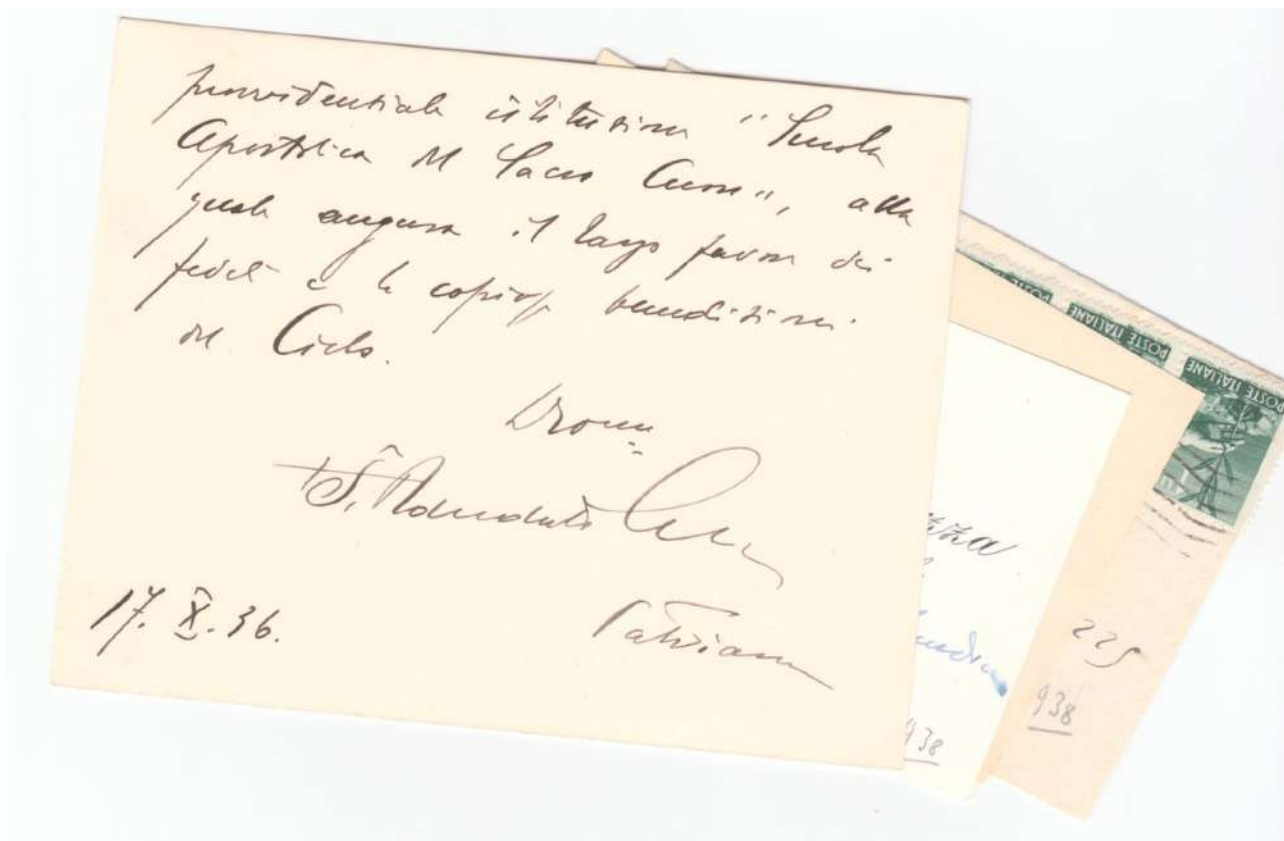 provvidenziale istituzione "Scuola
Apostolica del Sacro Cuore", alla
quale augura il largo favore dei
fedeli e le copiose benedizioni
del Cielo.
17. X. 36.
zza
225
938
938
POSTE ITALIANE
POSTE ITALIANE